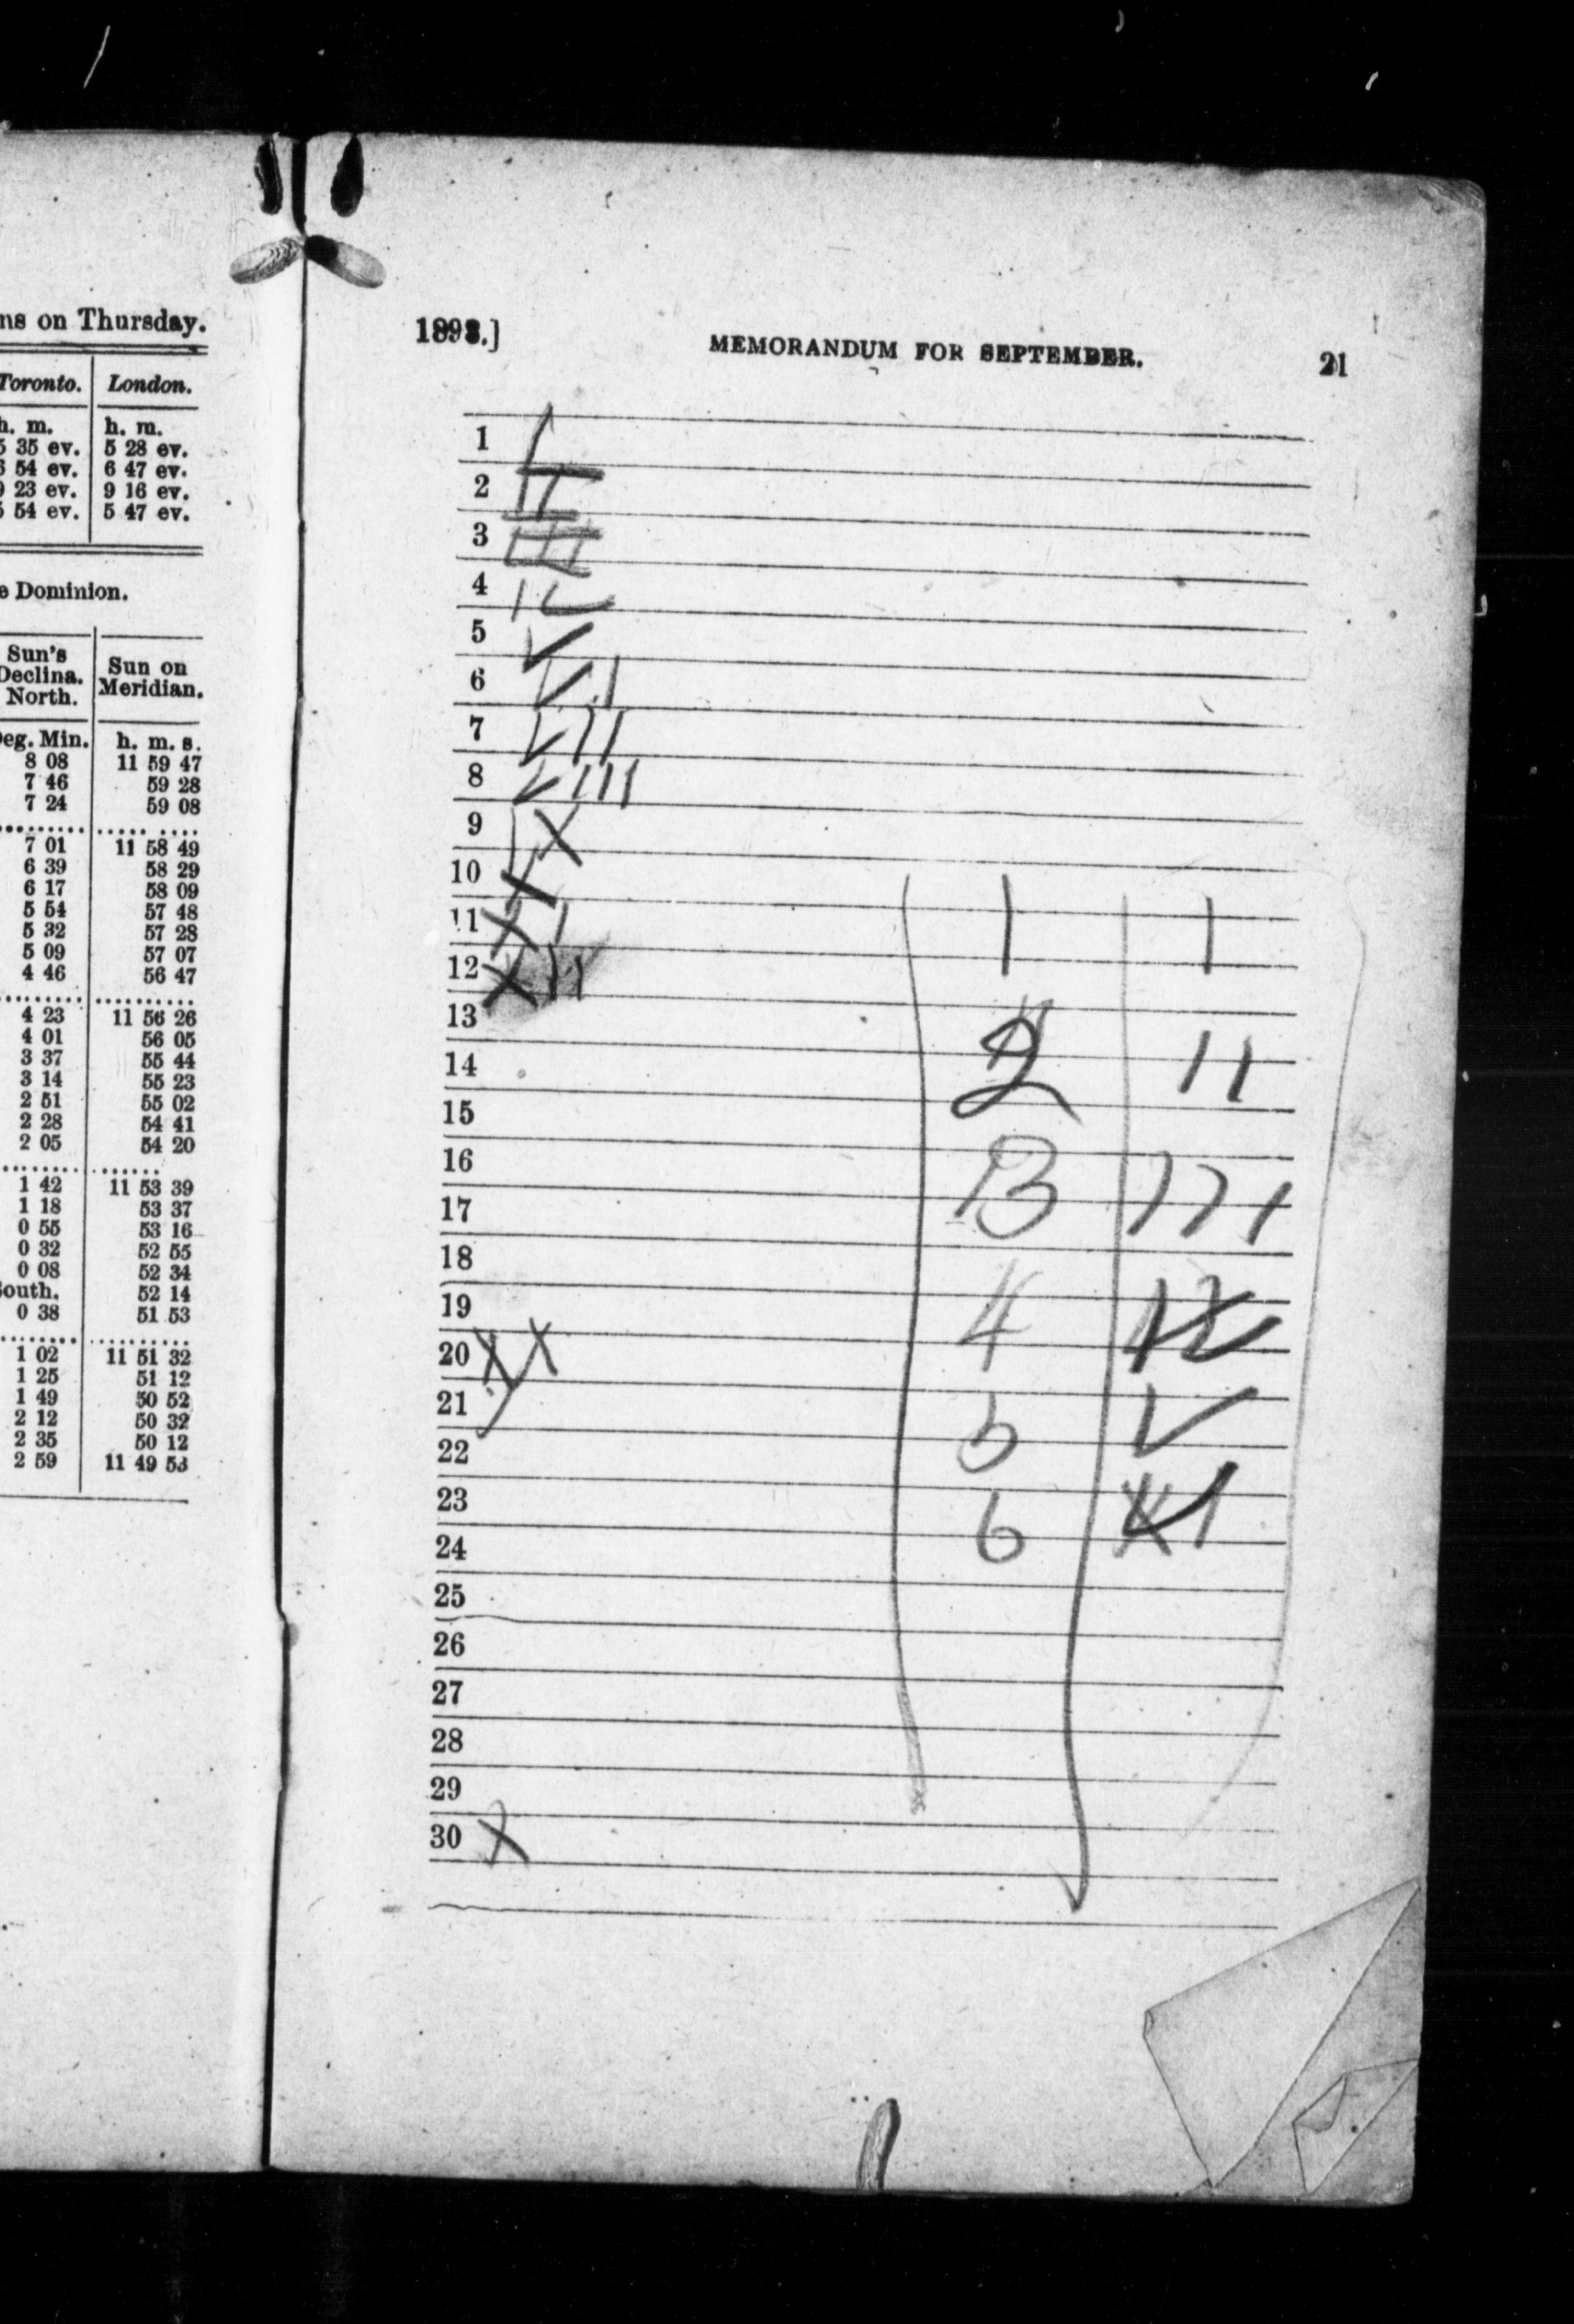 ns on Thursday.
Toronto. London.
h. m. h. m.
5 35 ev. 5 28 ev.
6 54 ev. 6 47 ev.
9 23 ev. 9 16 ev.
5 54 ev. 5 47 ev.
e Dominion.
Sun's Declina. North. Sun on Meridian.
Deg. Min. h. m. s.
8 08 11 59 47
7 46 59 28
7 24 59 08
7 01 11 58 49
6 39 58 29
6 17 58 09
5 54 57 48
5 32 57 28
5 09 57 07
4 46 56 47
4 23 11 56 26
4 01 56 05
3 37 55 44
3 14 55 23
2 51 55 02
2 28 54 41
2 05 54 20
1 42 11 53 39
1 18 53 37
0 55 53 16
0 32 52 55
0 08 52 34
South. 52 14
0 38 51 53
1 02 11 51 32
1 25 51 12
1 49 50 52
2 12 50 32
2 35 50 12
2 59 11 49 53
1898.] MEMORANDUM FOR SEPTEMBER. 21
1 I
2 II
3 III
4 IV
5 V
6 VI
7 VII
8 VIII
9 IX
10 X
11 XI
12 XII
13
14
15
16
17
18
19
20 XX
21
22
23
24
25
26
27
28
29
30 X
1 I
2 II
3 III
4 IV
5 V
6 VI